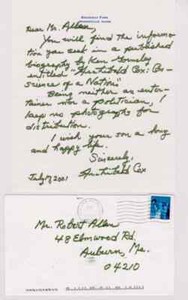 Dear Mr. Allen,
You will find the informa-
tion you seek in a published
biography by Ken Gormley
entitled "Archibald Cox: Con-
science of a Nation".
Being neither an enter-
tainer nor a politician, I
keep no photographs for
distribution.
I wish you a long
and happy life.
Sincerely,
July 17, 2001 Archibald Cox
Mr. Robert Allen
48 Elmwood Rd.
Auburn, Me.
04210